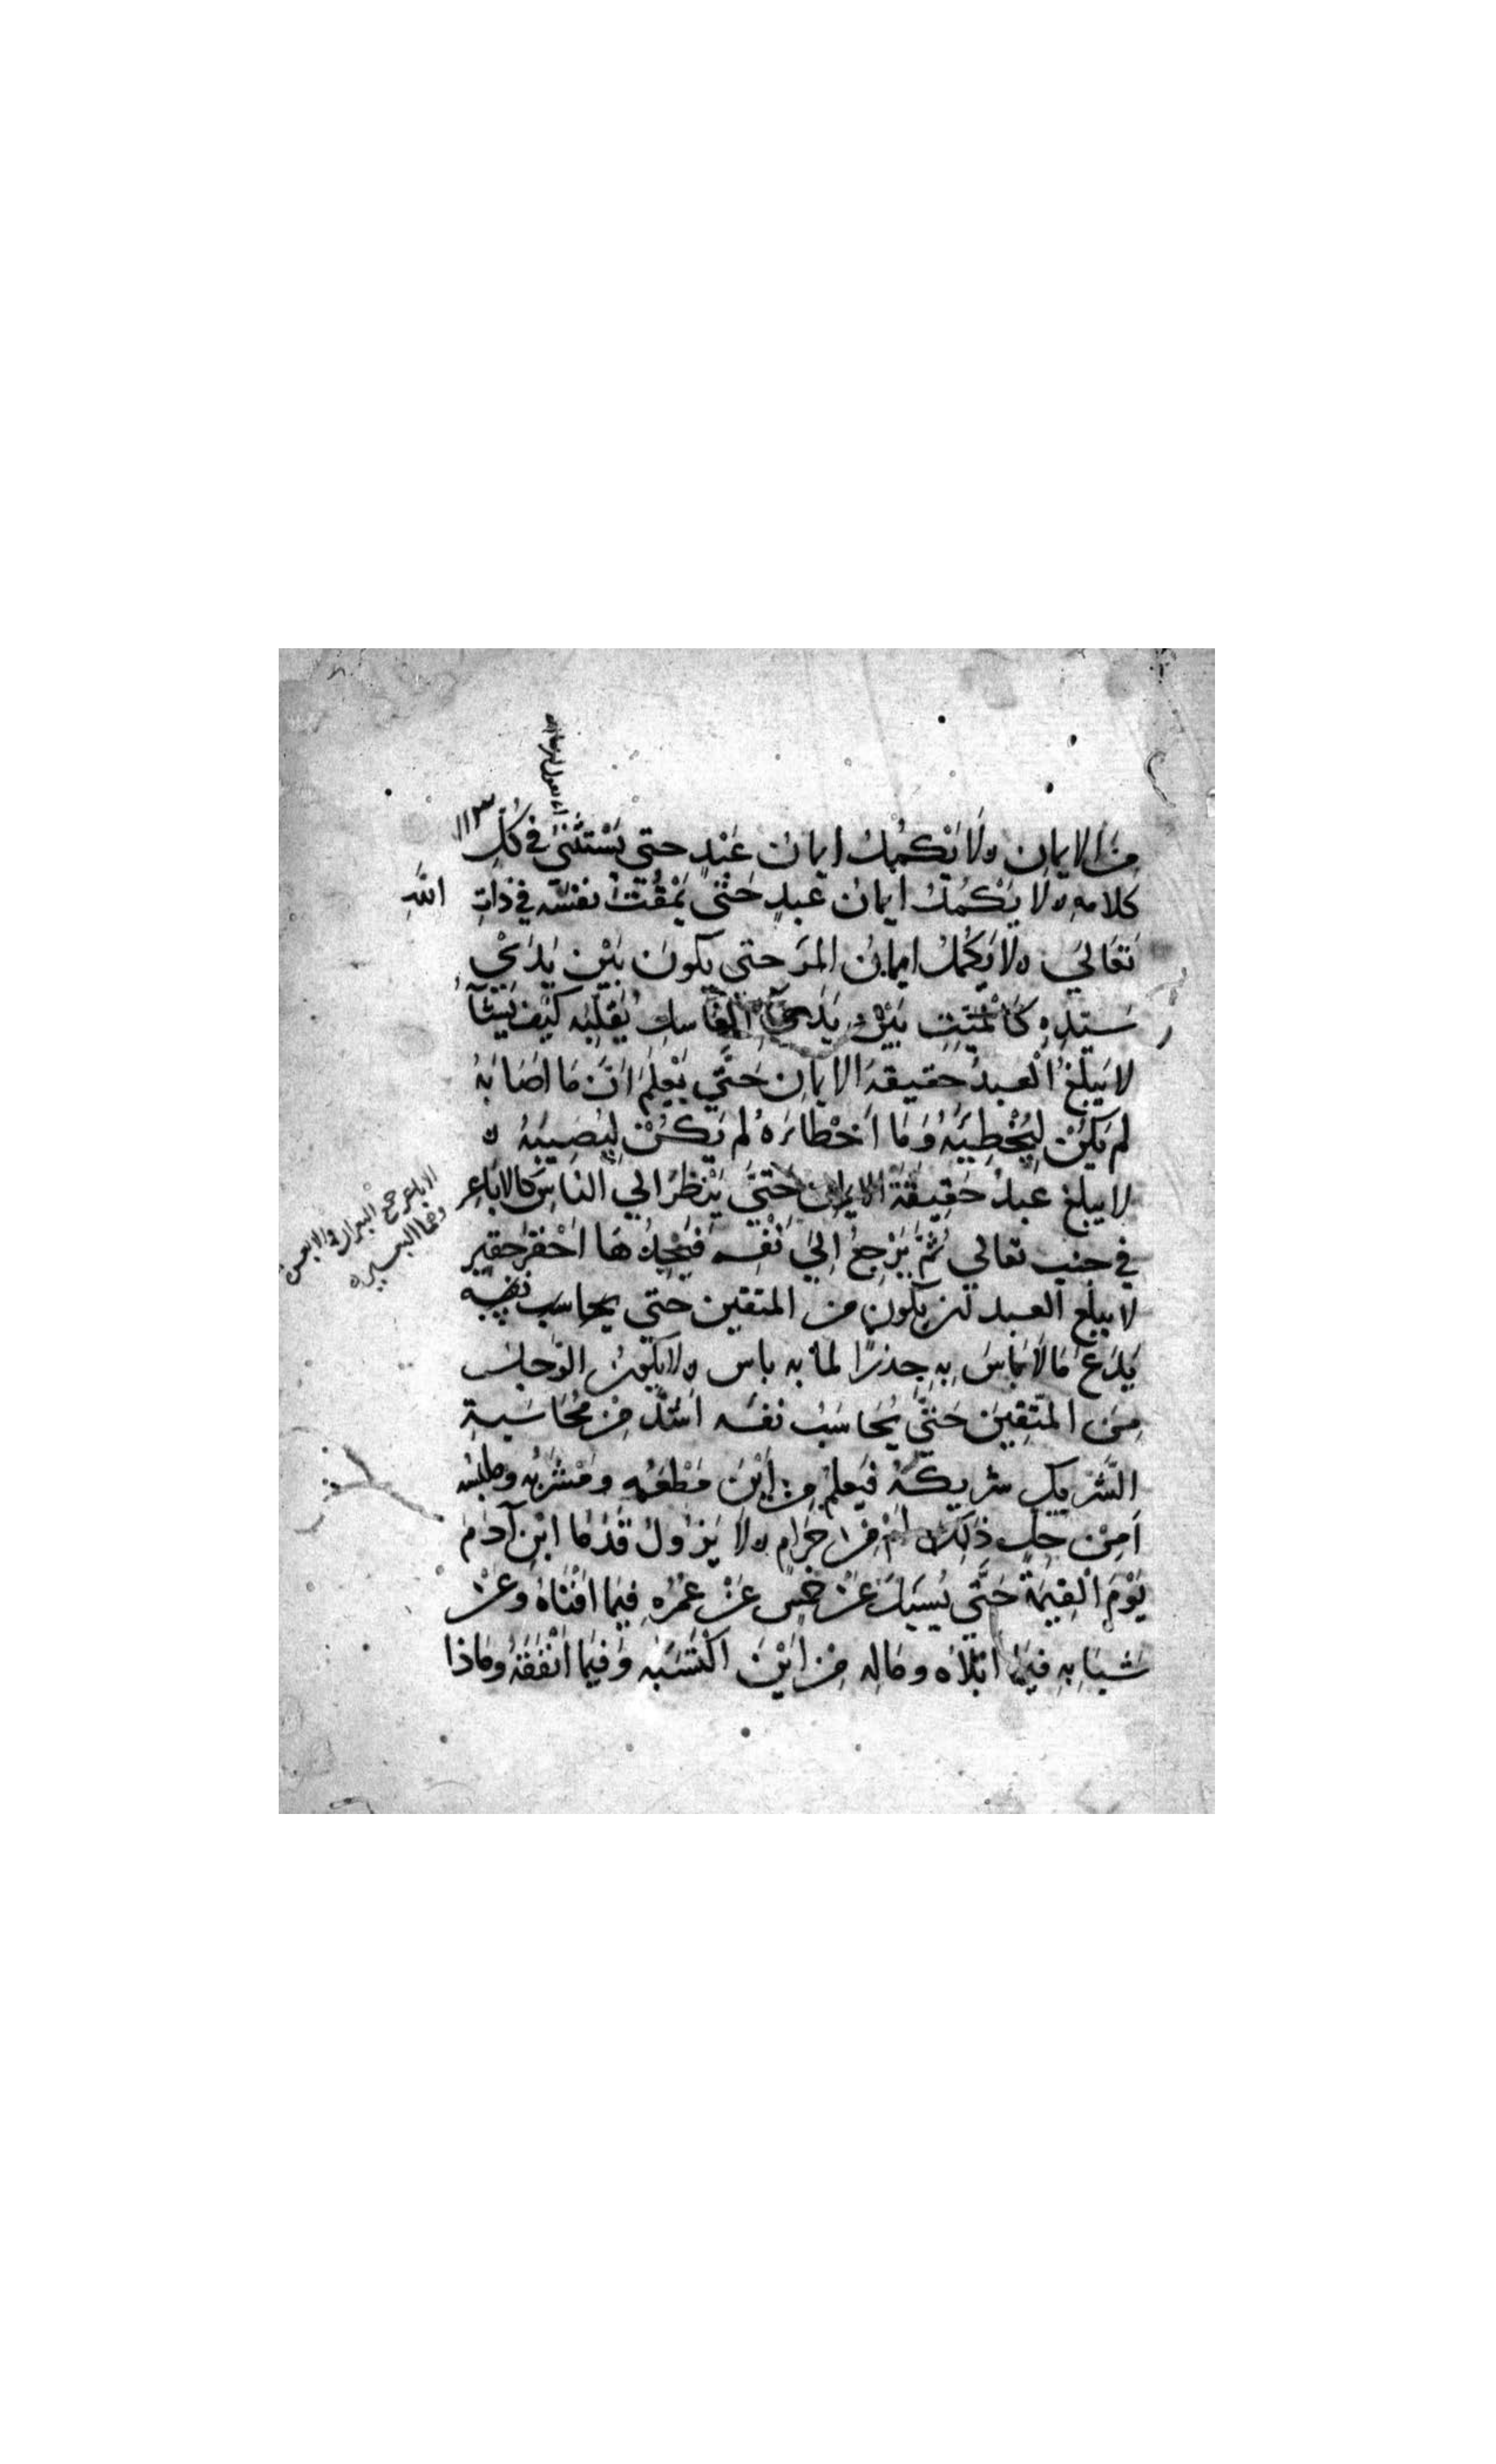 ١١٣
اى يقول ان شاء الله
مِنَ الايمانِ ولَا يَكْمُلُ ايمانُ عَبْدٍ حتى يَسْتثنىَ فى كُلِّ
كلامِهِ ولا يَكْمُلُ ايمانُ عبدٍ حَتّى يَمْقُتَ نفسَه فى ذاتِ اللهِ
تَعَالىَ ولا يَكمُلُ ايمانُ المرَ حتى يكونَ بَيْن يَدَىْ
سَيّدِهِ كَالْمَيّتِ بَيْنَ يَدَىِ الغَاسِلِ يُقَلّبُه كَيْف يَشَآءُ
لا يَبْلُغُ الْعبدُ حقيقةَ الايمانِ حَتَّى يَعْلَمَ اَنَّ مَا اَصَابَهُ
لم يَكُنْ لِيُخْطِيَهُ وَمَا اَخْطاءَهُ لم يَكُنْ لِيُصِيبَهُ ه
لا يبلغُ عبدُ حَقِيقَةَ الايمان حَتّىَ يَنْظُرَ الى الناسِ كالاباعِرِ
فى جنبِ تعالى ثُمَّ يَرْجِعُ اِلىَ نَفْسِه فَيَجِدُهَا اَحْقَرَ حقيرٍ
لا يبلغ العبد ان يكون من المتقين حتى يحاسب نفسه
يَدَعَ مَا لَا بَاسَ بِهِ حِذرًا لما به باس ولا يكونُ الرّجل
مِنَ المتّقِينَ حَتّى يُحَاسِبَ نفسَه اَشَدَّ مِنْ مُحَاسَبةِ
الشَّرْيكِ شريكَهُ فيَعلم مِن اَيْنَ مَطْعَمُه ومَشْرَبُه وملبسُه
اَمِنْ حِلِّ ذلِكَ اَمْ مِنْ حَرَامٍ ولا يَزُولُ قَدَمَا ابْنِ آدَمَ
يَوْمَ الْقِيمَةِ حَتَّى يُسْئَلَ عَنْ خَمْسٍ عَنْ عُمُرِهِ فِيمَا اَفْنَاهُ وعَنْ
شَبَابِهِ فِيمَا اَبْلَاه ومَالِه مِن اَيْنَ اكْتَسَبَه وَفيمَا اَنْفَقَهُ ومَاذا
الاباعر جمع البعران والابعر
وهما البعير ه